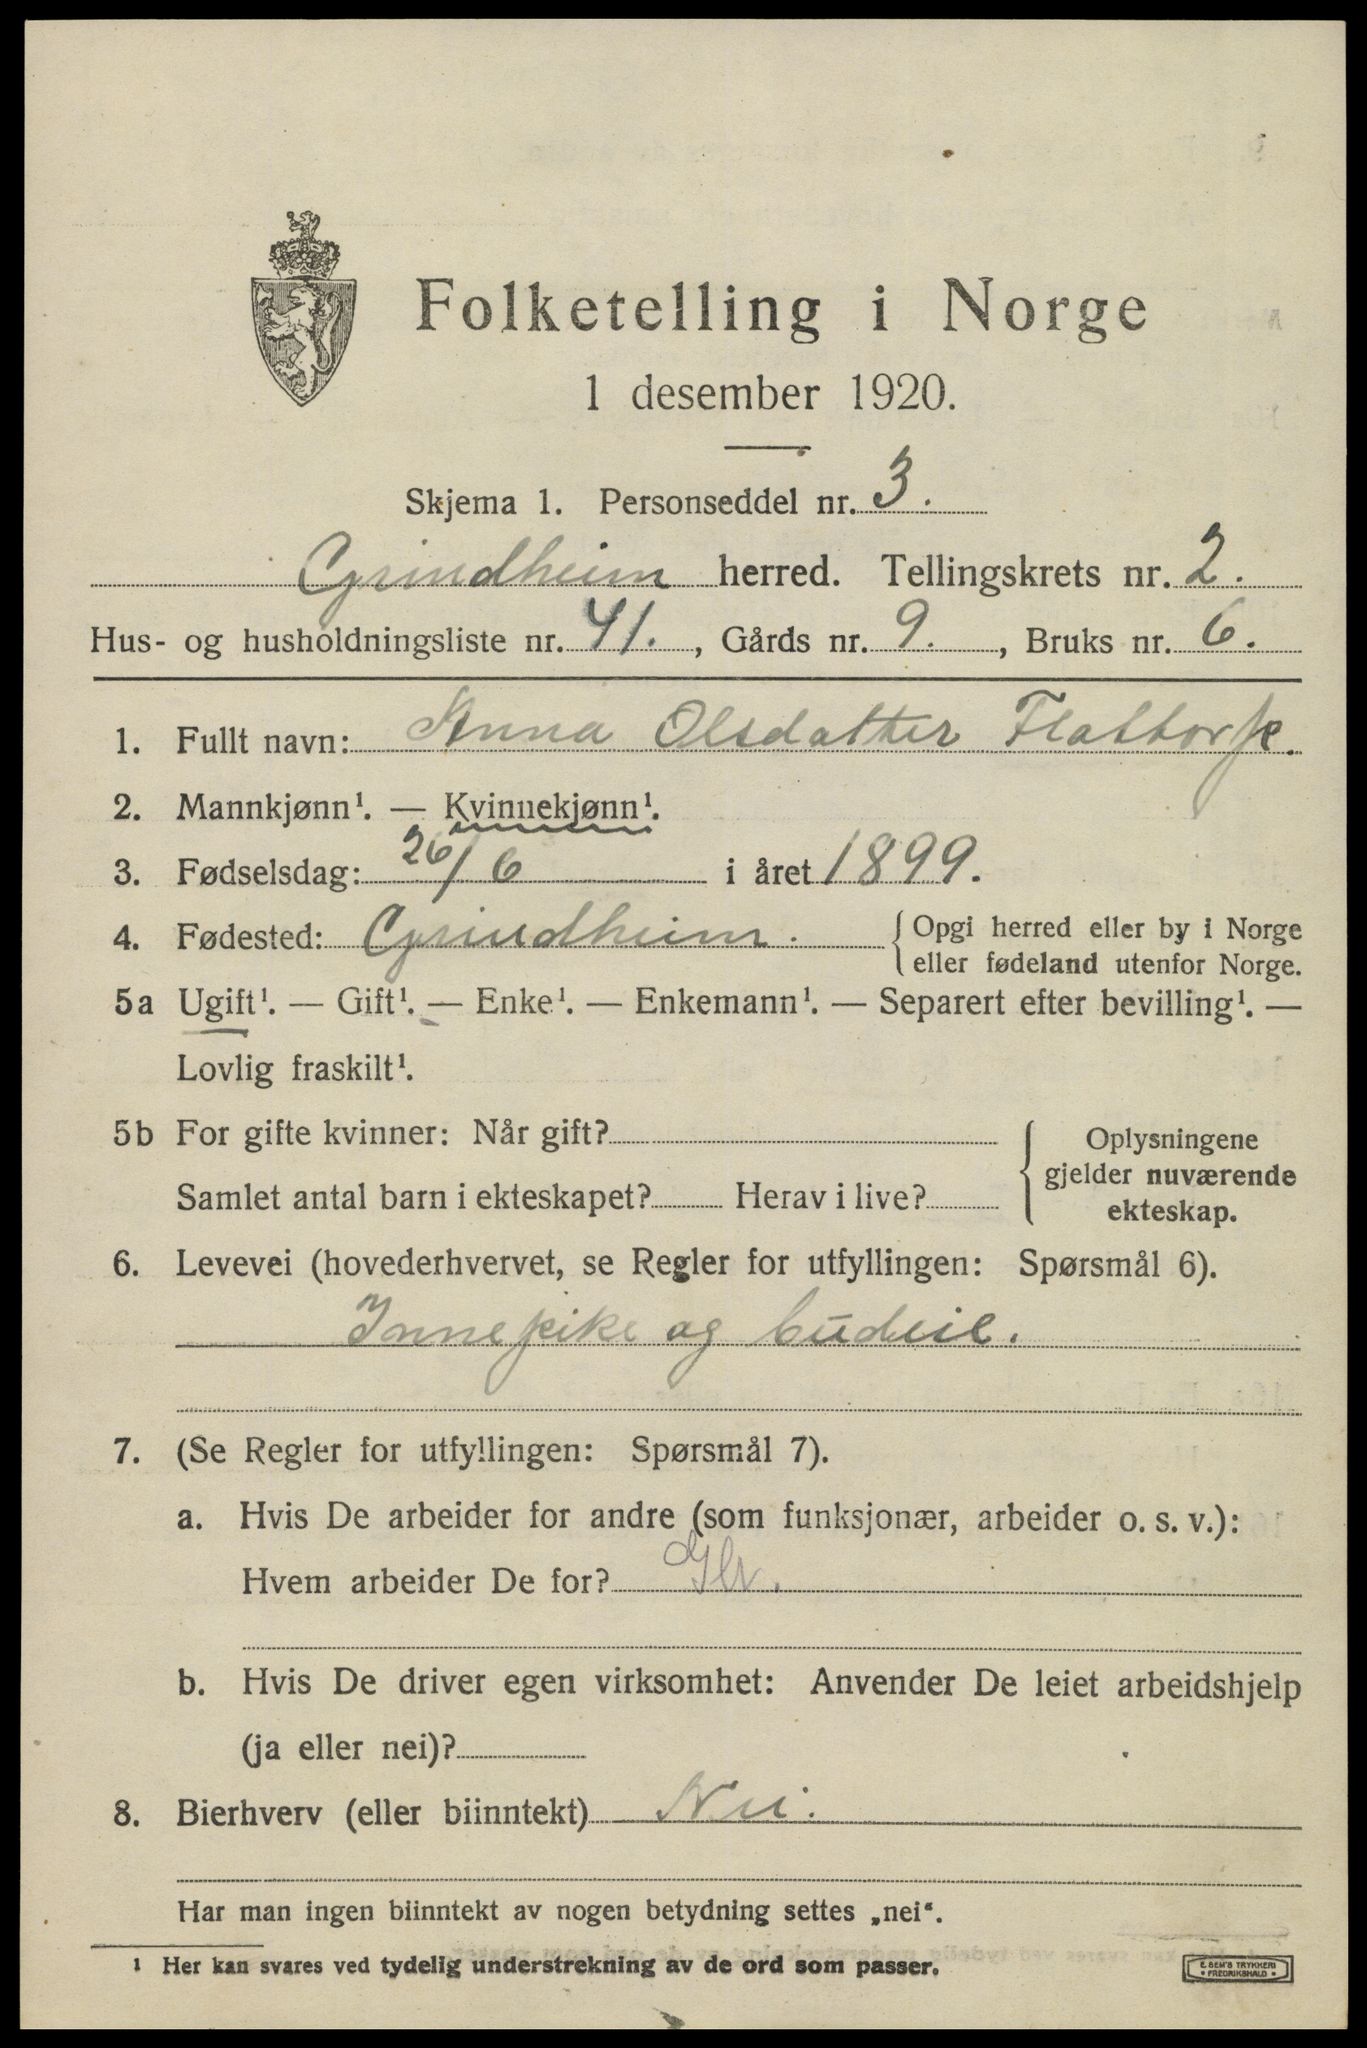 Folketelling i Norge
1 desember 1920.
Skjema 1. Personseddel nr. 3.
Grindheim herred. Tellingskrets nr. 2.
Hus- og husholdningsliste nr. 41., Gårds nr. 9., Bruks nr. 6.
1. Fullt navn: Anna Olsdatter
2. Mannkjønn¹. — Kvinnekjønn¹.
3. Fødselsdag: 26/6 i året 1899.
4. Fødested: Grindheim. { Opgi herred eller by i Norge
eller fødeland utenfor Norge.
5a Ugift¹. — Gift¹. — Enke¹. — Enkemann¹. — Separert efter bevilling¹. —
Lovlig fraskilt¹.
5b For gifte kvinner: Når gift? { Oplysningene
gjelder nuværende
Samlet antal barn i ekteskapet? Herav i live?
ekteskap.
6. Levevei (hovederhvervet, se Regler for utfyllingen: Spørsmål 6).
Innepike og budeie.
7. (Se Regler for utfyllingen: Spørsmål 7).
a. Hvis De arbeider for andre (som funksjonær, arbeider o. s. v.):
Hvem arbeider De for?
b. Hvis De driver egen virksomhet: Anvender De leiet arbeidshjelp
(ja eller nei)?
8. Bierhverv (eller biinntekt) Nei.
Har man ingen biinntekt av nogen betydning settes „nei“.
¹ Her kan svares ved tydelig understrekning av de ord som passer.
E. SEM'S TRYKKERI
• FREDRIKSHALD •